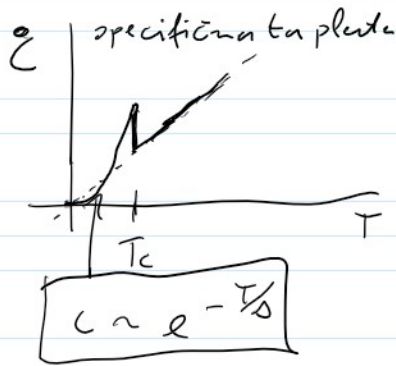 c specifična toplota
T
Tc
c ~ e^-T/Δ